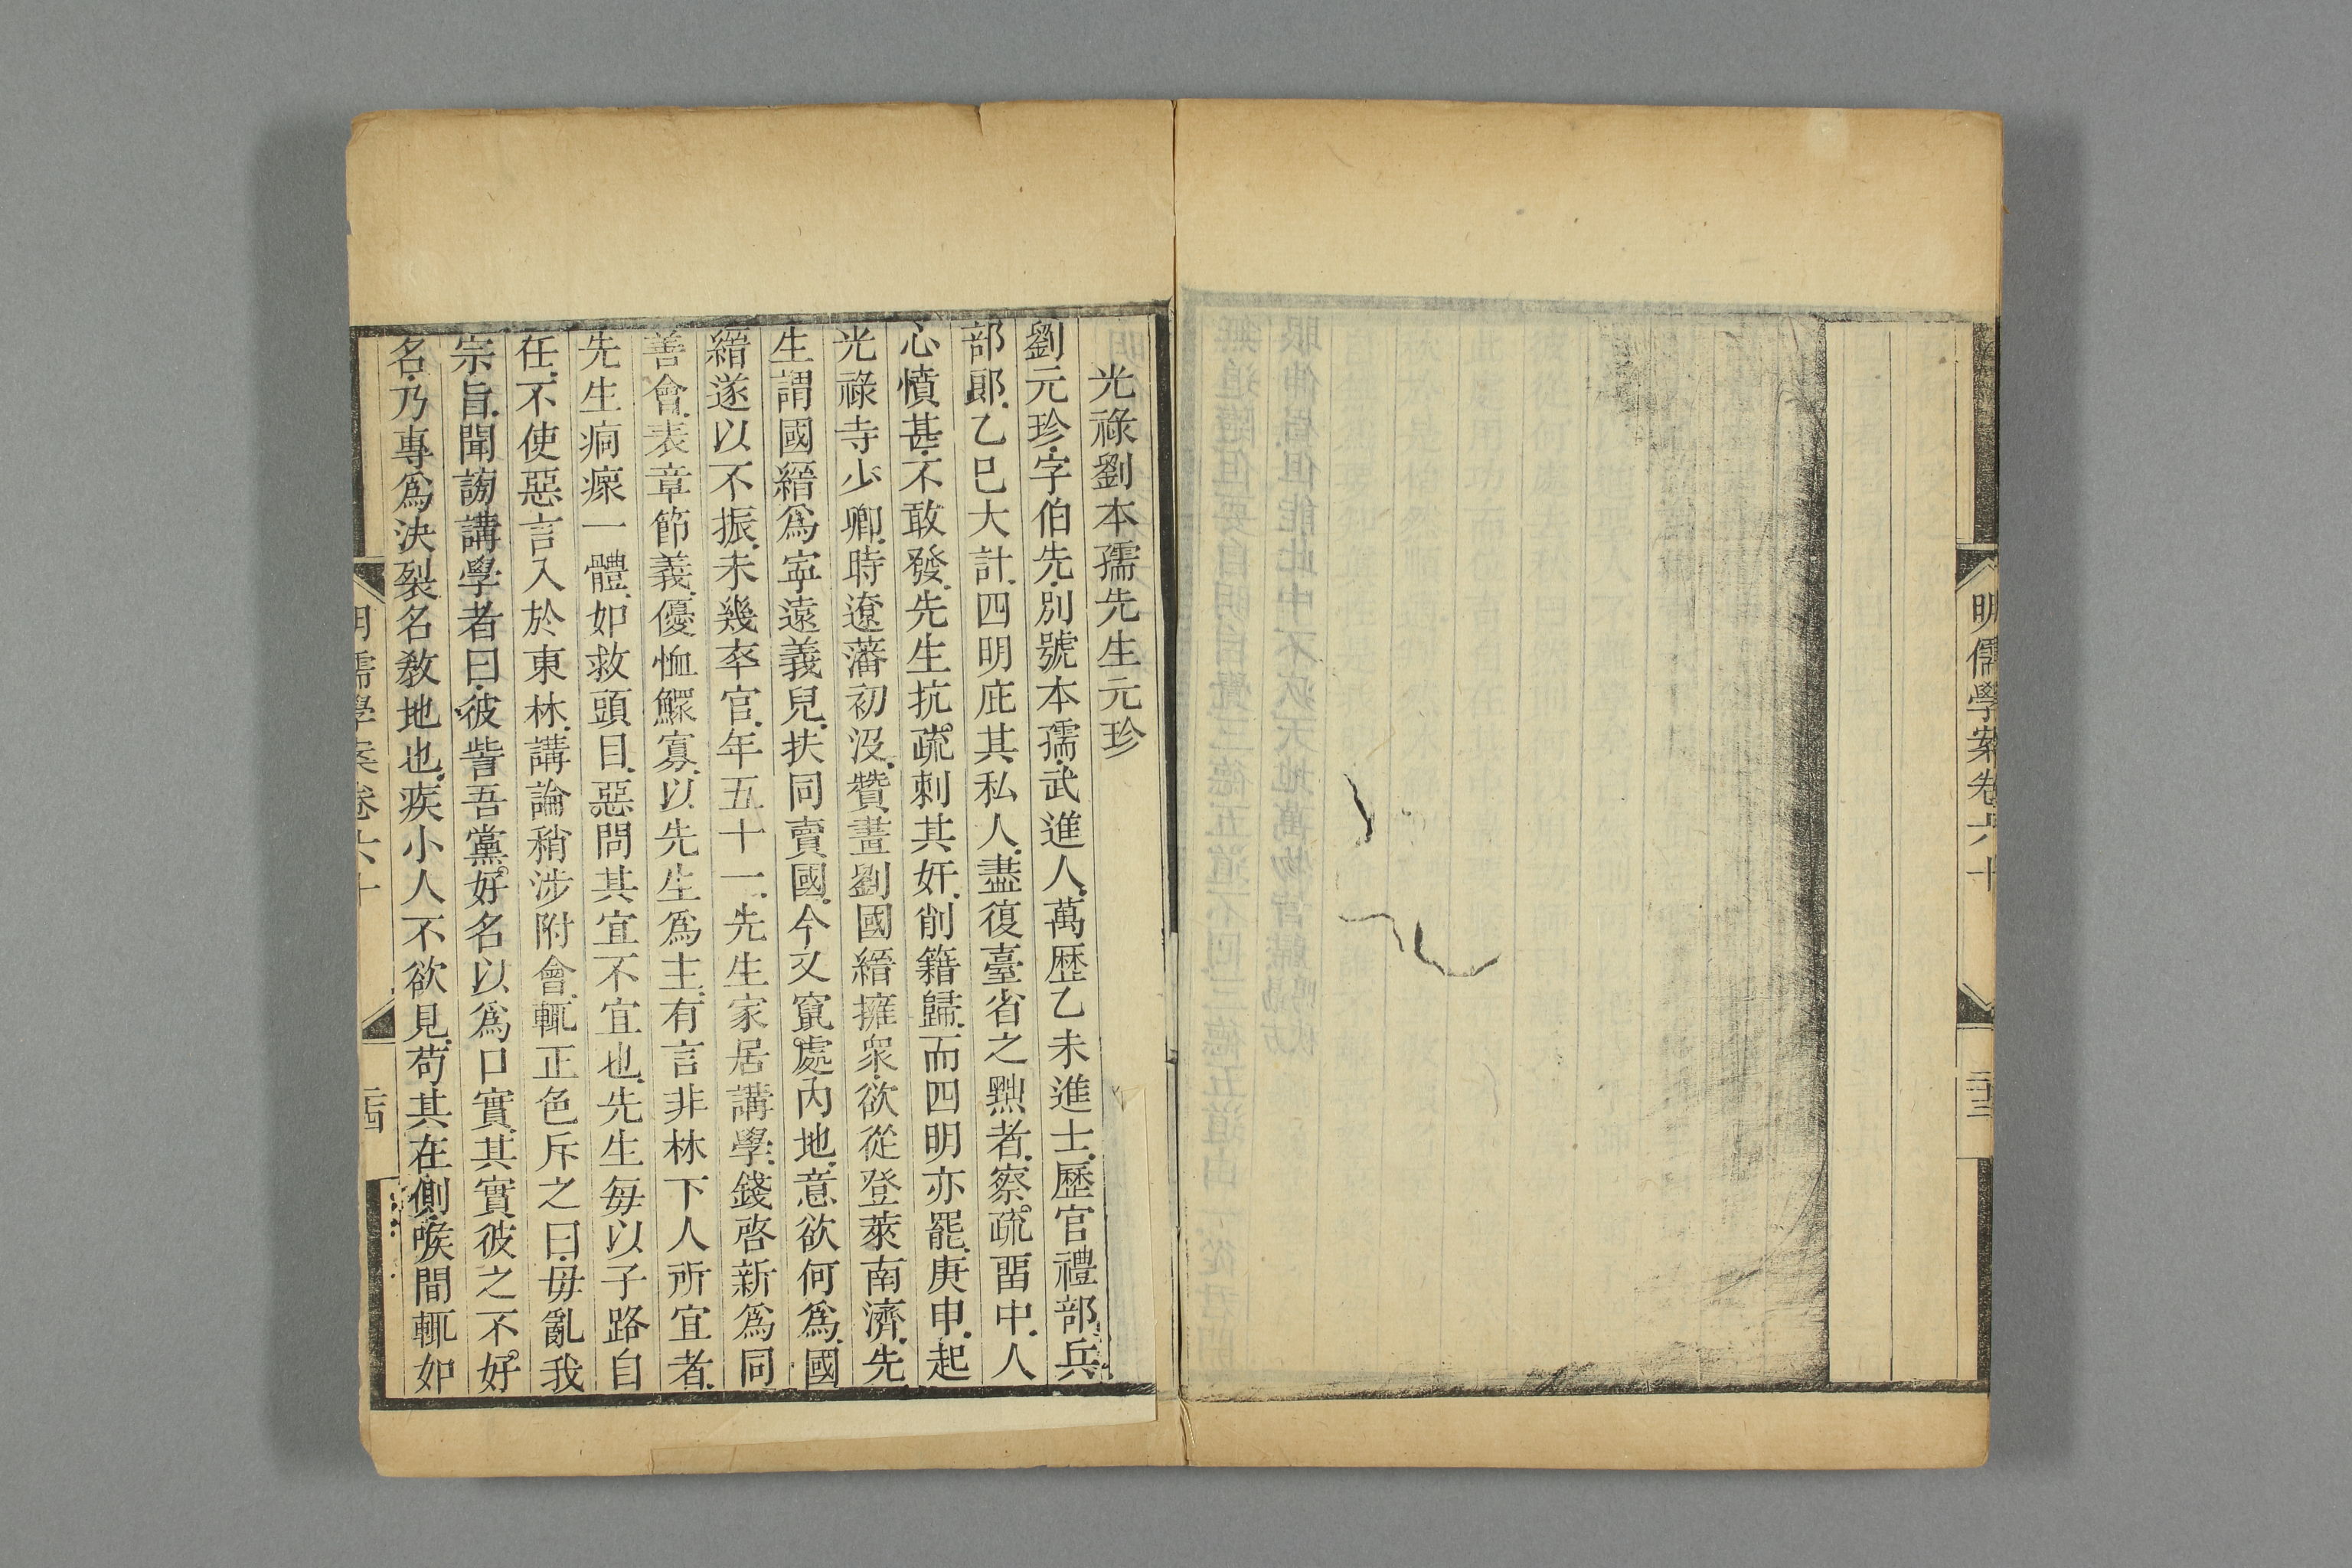 明儒學案卷六十
二十三
光祿劉本孺先生元珍
劉元珍，字伯先，別號本孺，武進人。萬歷乙未進士。歷官禮部兵
部郞。乙巳大計，四明庇其私人，盡復臺省之黜者，察疏畱中，人
心憤甚，不敢發。先生抗疏刺其奸，削籍歸。而四明亦罷。庚申，起
光祿寺少卿。時遼藩初沒，贊畫劉國縉擁衆欲從登萊南濟，先
生謂國縉爲寧遠義兒，扶同賣國，今又竄處內地，意欲何爲，國
縉遂以不振。未幾卒官。年五十一。先生家居講學，錢啓新爲同
善會，表章節義，優恤鰥寡，以先生爲主。有言非林下人所宜者，
先生痌瘝一體，如救頭目，惡問其宜不宜也。先生每以子路自
任，不使惡言入於東林，講論稍涉附會，輒正色斥之曰，毋亂我
宗旨。聞謗講學者曰，彼訾吾黨好名以爲口實，其實彼之不好
名，乃專爲決裂名敎地也。疾小人不欲見，苟其在側，喉間輒如
明儒學案卷六十
二十四